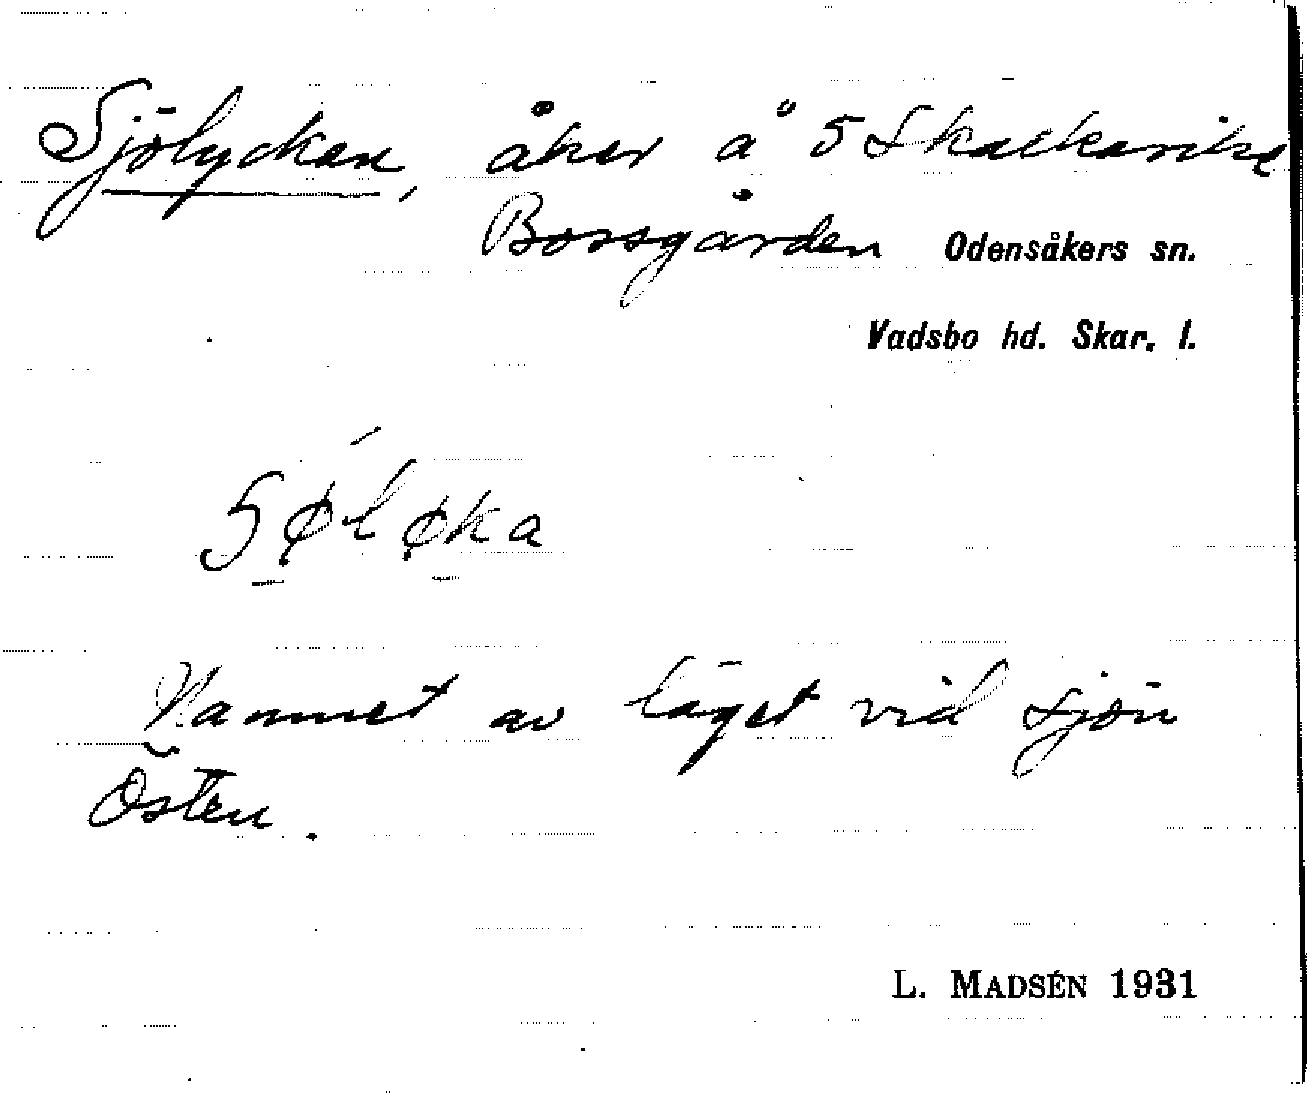 Sjölyckan, åker å 5 Skattkarike
Bossgården Odensåkers sn.
Vadsbo hd. Skar. l.
Namnet av läget vid sjön
Östen.
L. MADSÉN 1931